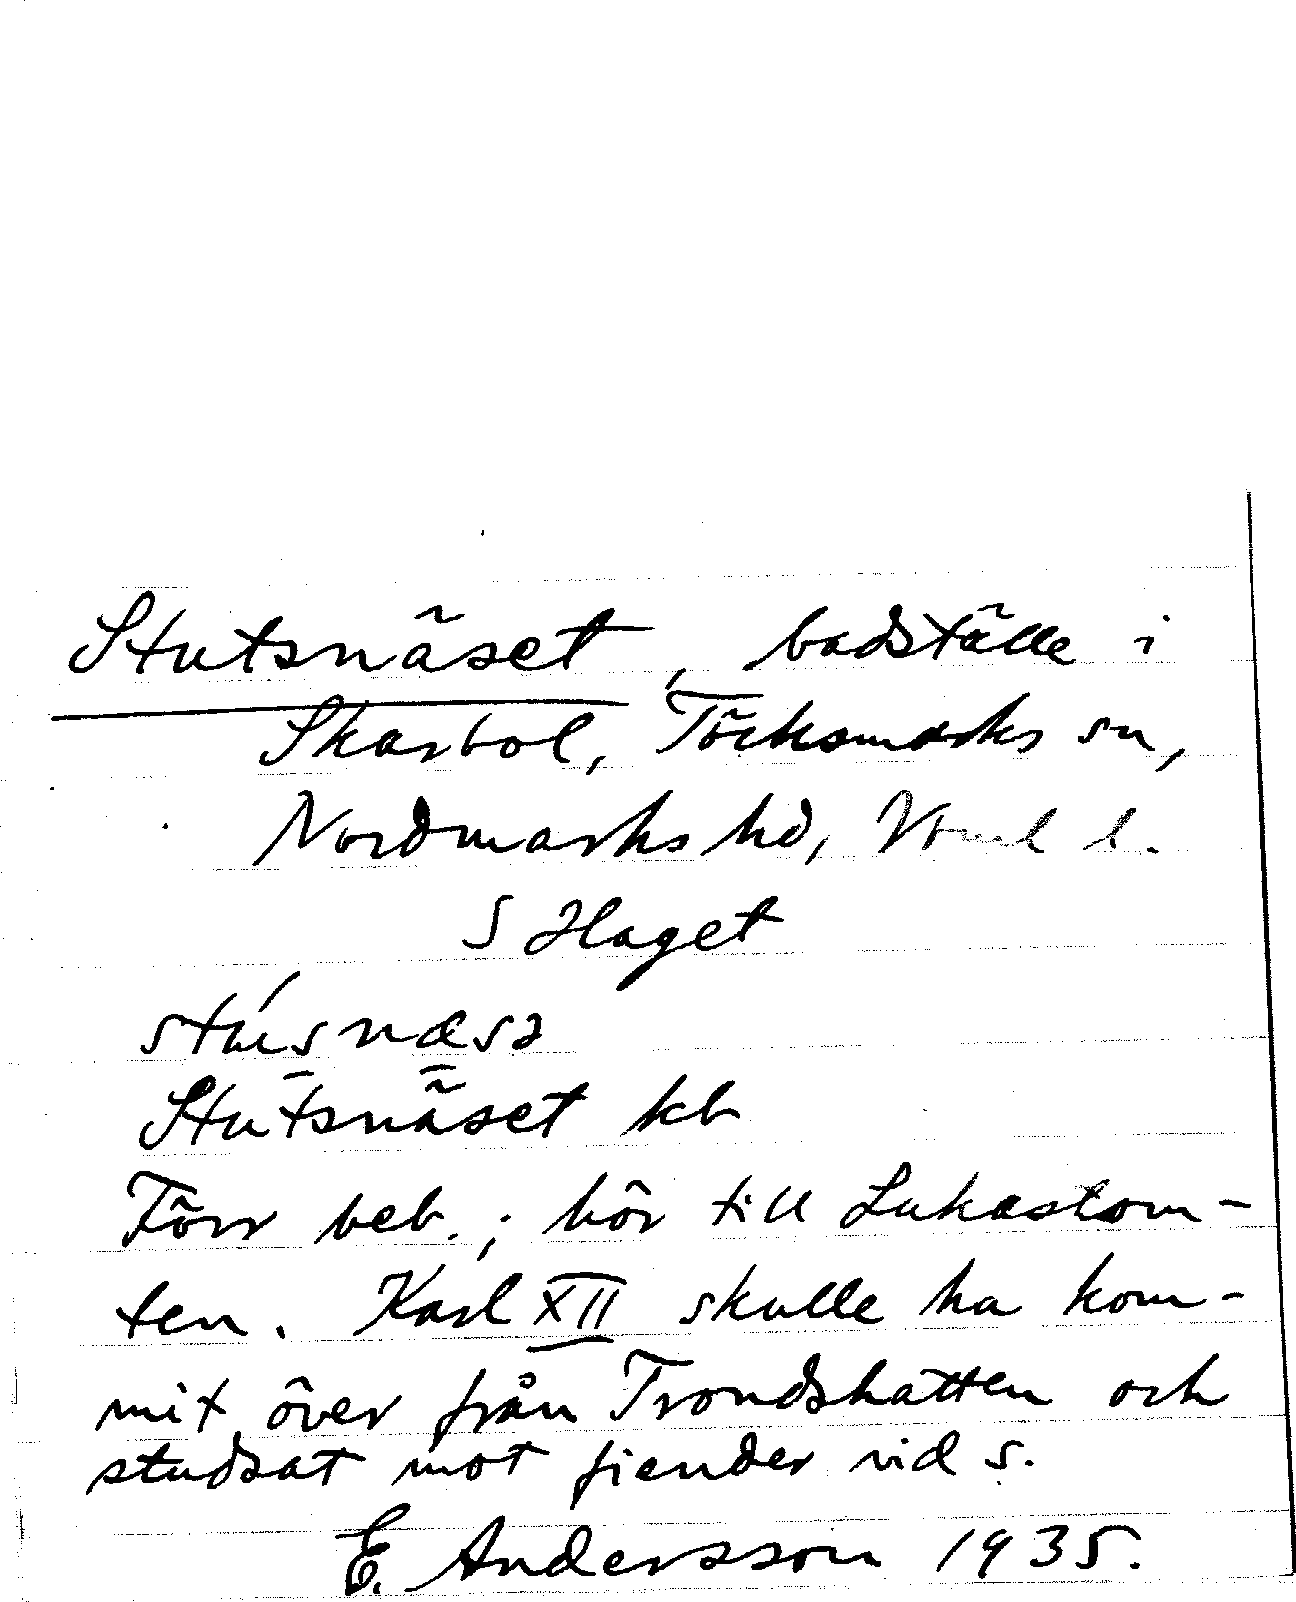 Stutsnäset, badställe i
Skarbol, Töcksmarks sn,
Nordmarks hd, Vrml l.
S Haget
stúsnæsa
Stutsnäset kb
Förr beb.; hör till Lukastom-
ten. Karl XII skulle ha kom-
mit över från Trondshatten och
studsat mot fiender vid s.
E. Andersson 1935.